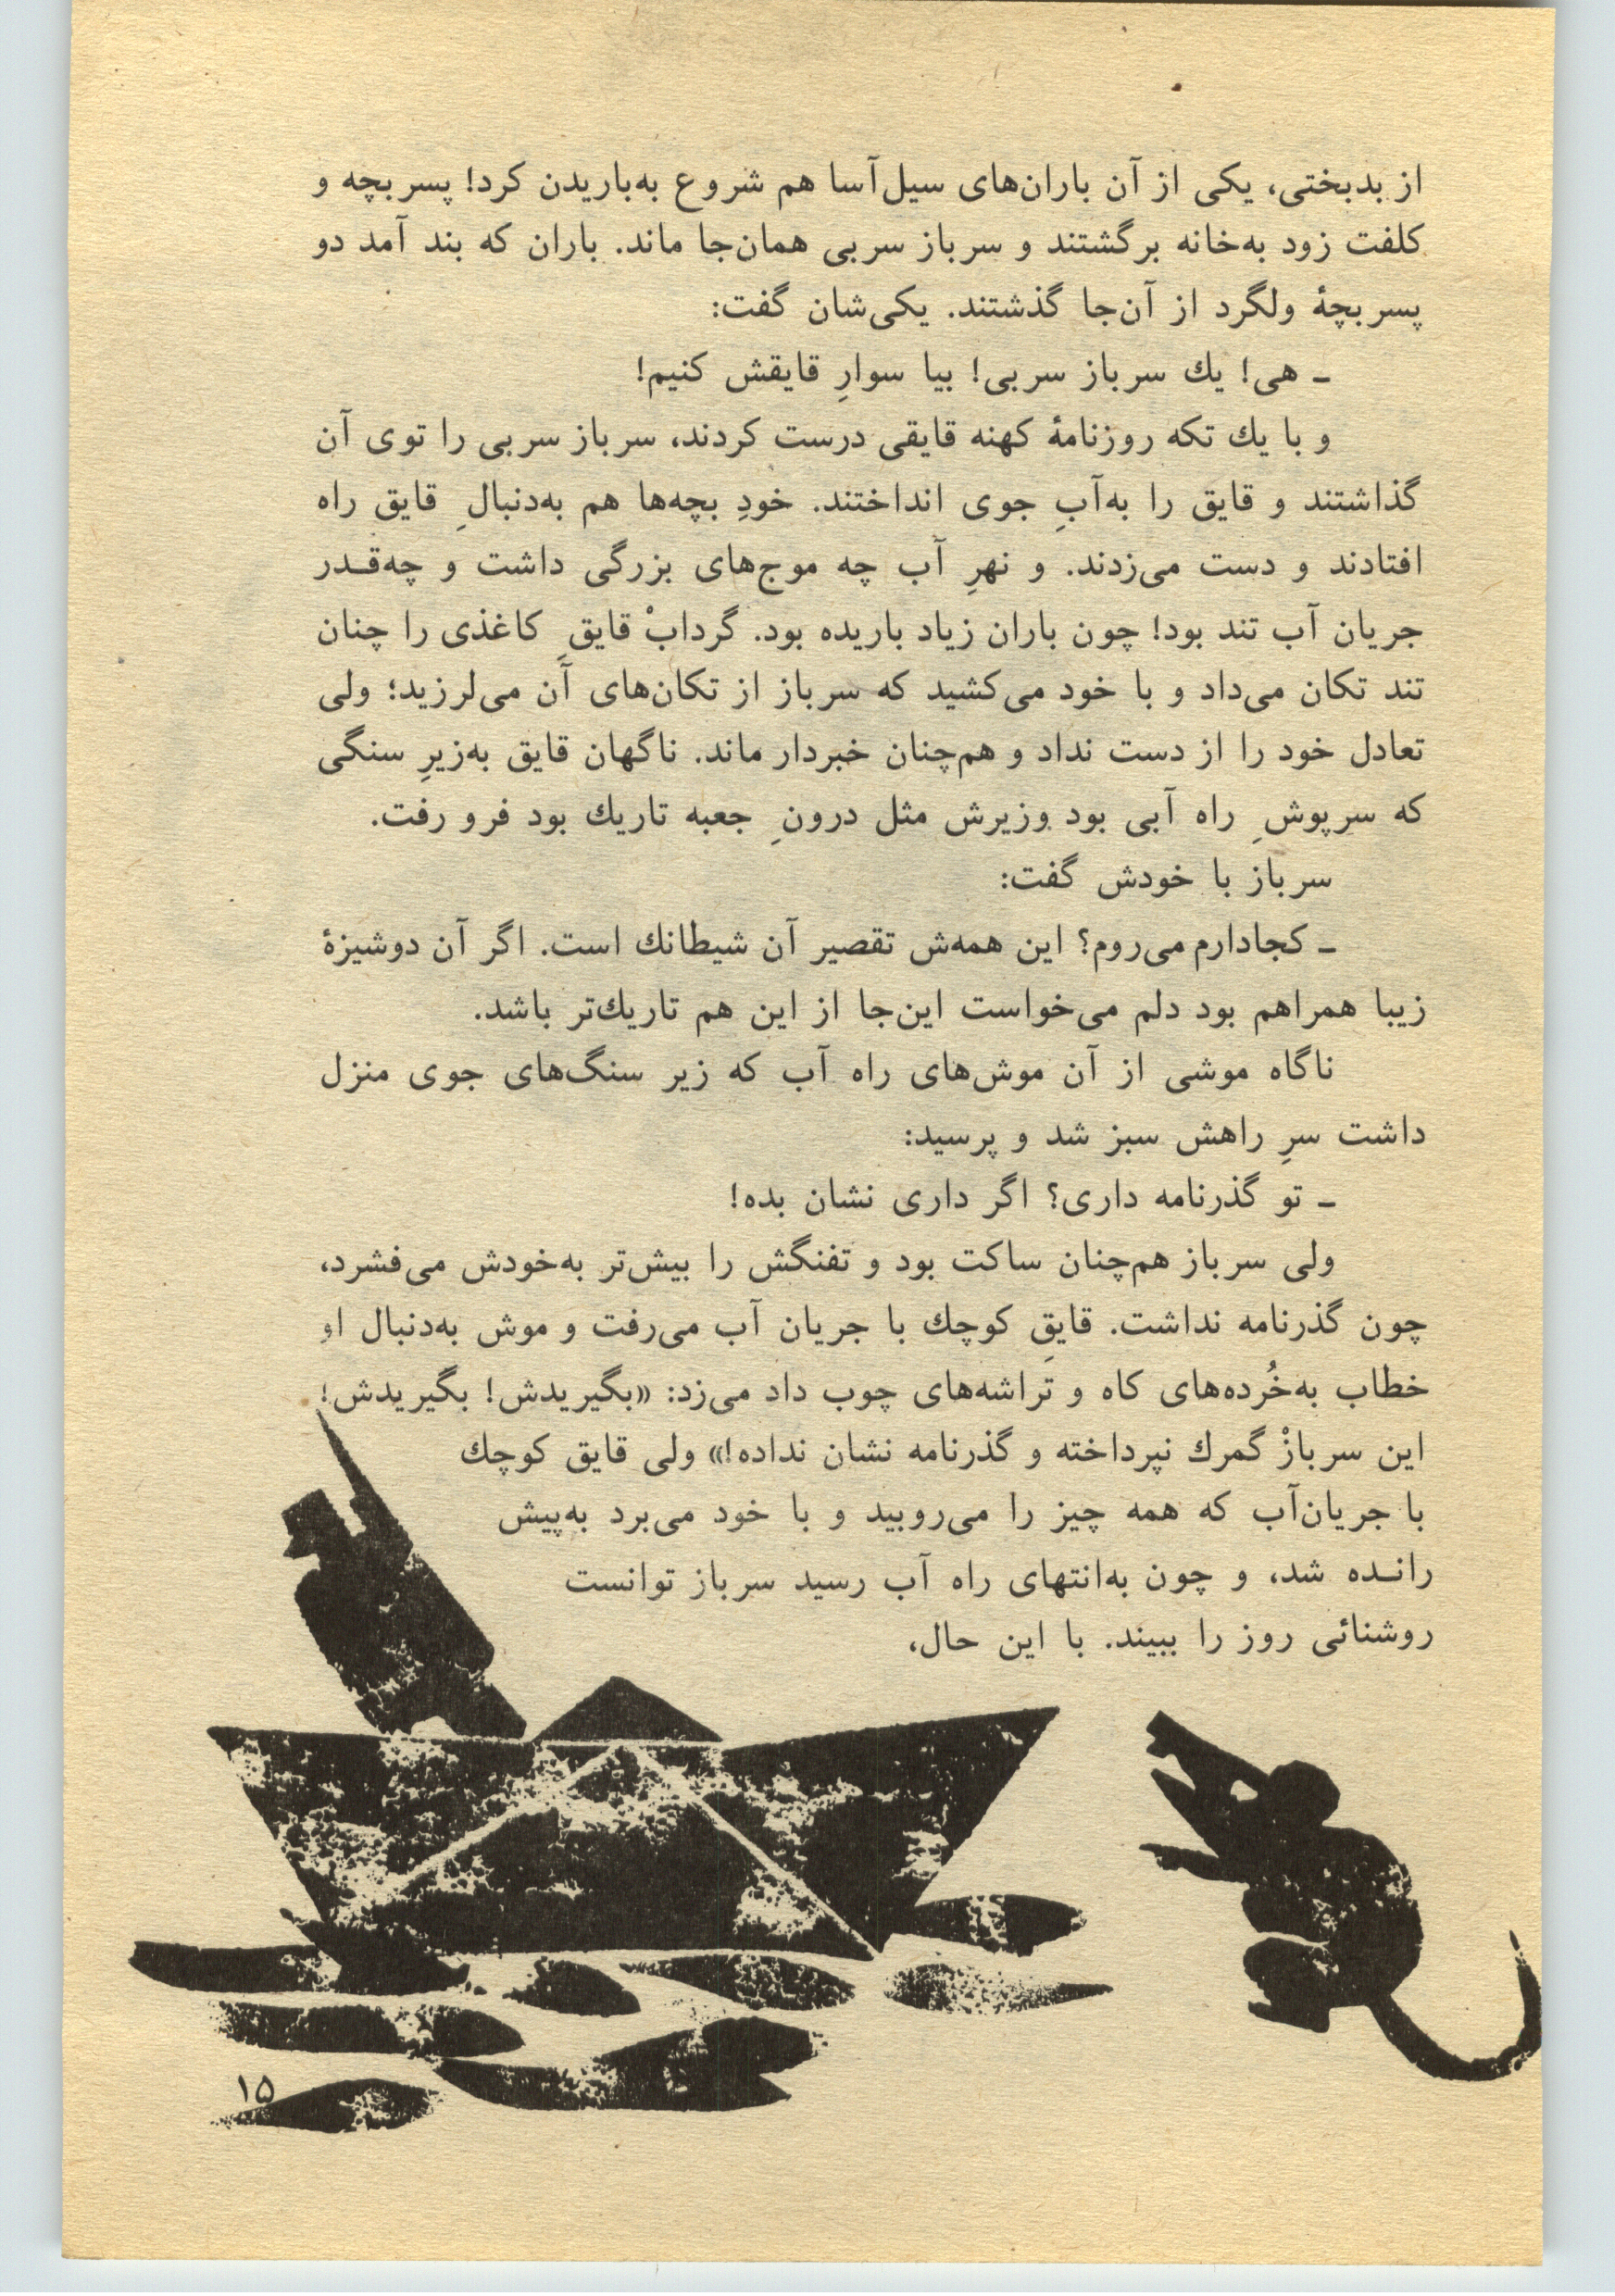 از بدبختی، یکی از آن باران‌های سیل‌آسا هم شروع به‌باریدن کرد! پسربچه و
کلفت زود به‌خانه برگشتند و سرباز سربی همان‌جا ماند. باران که بند آمد دو
پسربچهٔ ولگرد از آن‌جا گذشتند. یکی‌شان گفت:
ـ هی! یك سرباز سربی! بیا سوارِ قایقش کنیم!
و با یك تکه روزنامهٔ کهنه قایقی درست کردند، سرباز سربی را توی آن
گذاشتند و قایق را به‌آبِ جوی انداختند. خودِ بچه‌ها هم به‌دنبالِ قایق راه
افتادند و دست می‌زدند. و نهرِ آب چه موج‌های بزرگی داشت و چه‌قـدر
جریان آب تند بود! چون باران زیاد باریده بود. گردابْ قایقِ کاغذی را چنان
تند تکان می‌داد و با خود می‌کشید که سرباز از تکان‌های آن می‌لرزید؛ ولی
تعادل خود را از دست نداد و هم‌چنان خبردار ماند. ناگهان قایق به‌زیرِ سنگی
که سرپوشِ راه آبی بود وزیرش مثل درونِ جعبه تاریك بود فرو رفت.
سرباز با خودش گفت:
ـ کجادارم می‌روم؟ این همه‌ش تقصیر آن شیطانك است. اگر آن دوشیزهٔ
زیبا همراهم بود دلم می‌خواست این‌جا از این هم تاریك‌تر باشد.
ناگاه موشی از آن موش‌های راه آب که زیر سنگ‌های جوی منزل
داشت سرِ راهش سبز شد و پرسید:
ـ تو گذرنامه داری؟ اگر داری نشان بده!
ولی سرباز هم‌چنان ساکت بود و تفنگش را بیش‌تر به‌خودش می‌فشرد،
چون گذرنامه نداشت. قایقِ کوچك با جریان آب می‌رفت و موش به‌دنبال او
خطاب به‌خُرده‌های کاه و تراشه‌های چوب داد می‌زد: «بگیریدش! بگیریدش!
این سربازْ گمرك نپرداخته و گذرنامه نشان نداده!» ولی قایق کوچك
با جریان‌آب که همه چیز را می‌روبید و با خود می‌برد به‌پیش
رانـده شد، و چون به‌انتهای راه آب رسید سرباز توانست
روشنائی روز را ببیند. با این حال،
۱۵